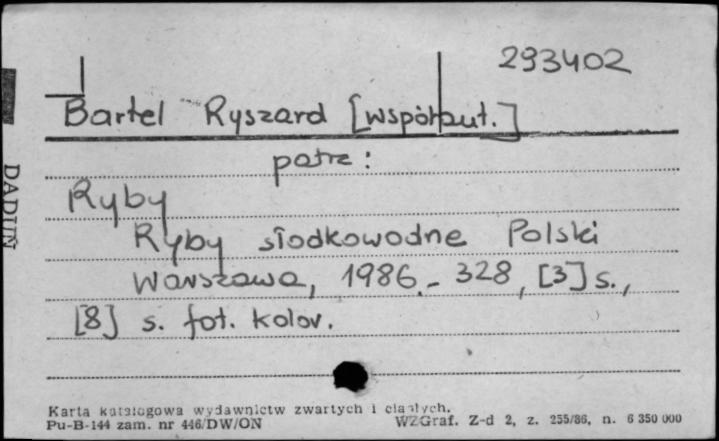 293402
Bartel Ryszard [współaut.]
patrz:
Ryby
Ryby słodkowodne Polski
Warszawa, 1986.- 328, [3] s.,
[8] s. fot. kolor.
Karta katalogowa wydawnictw zwartych i ciągłych.
Pu-B-144 zam. nr 446/DW/ON WZGraf. Z-d 2, z. 255/86, n. 6 350 000